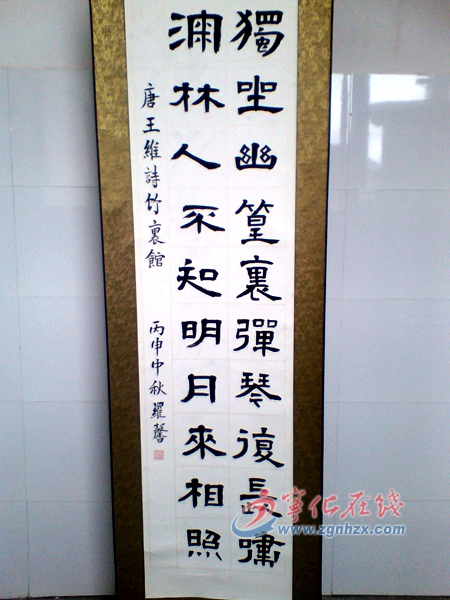 獨坐幽篁裏彈琴復長嘯
深林人不知明月來相照
唐王維詩竹裏館
丙申中秋羅馨
寧化在线
www.zgnhzx.com